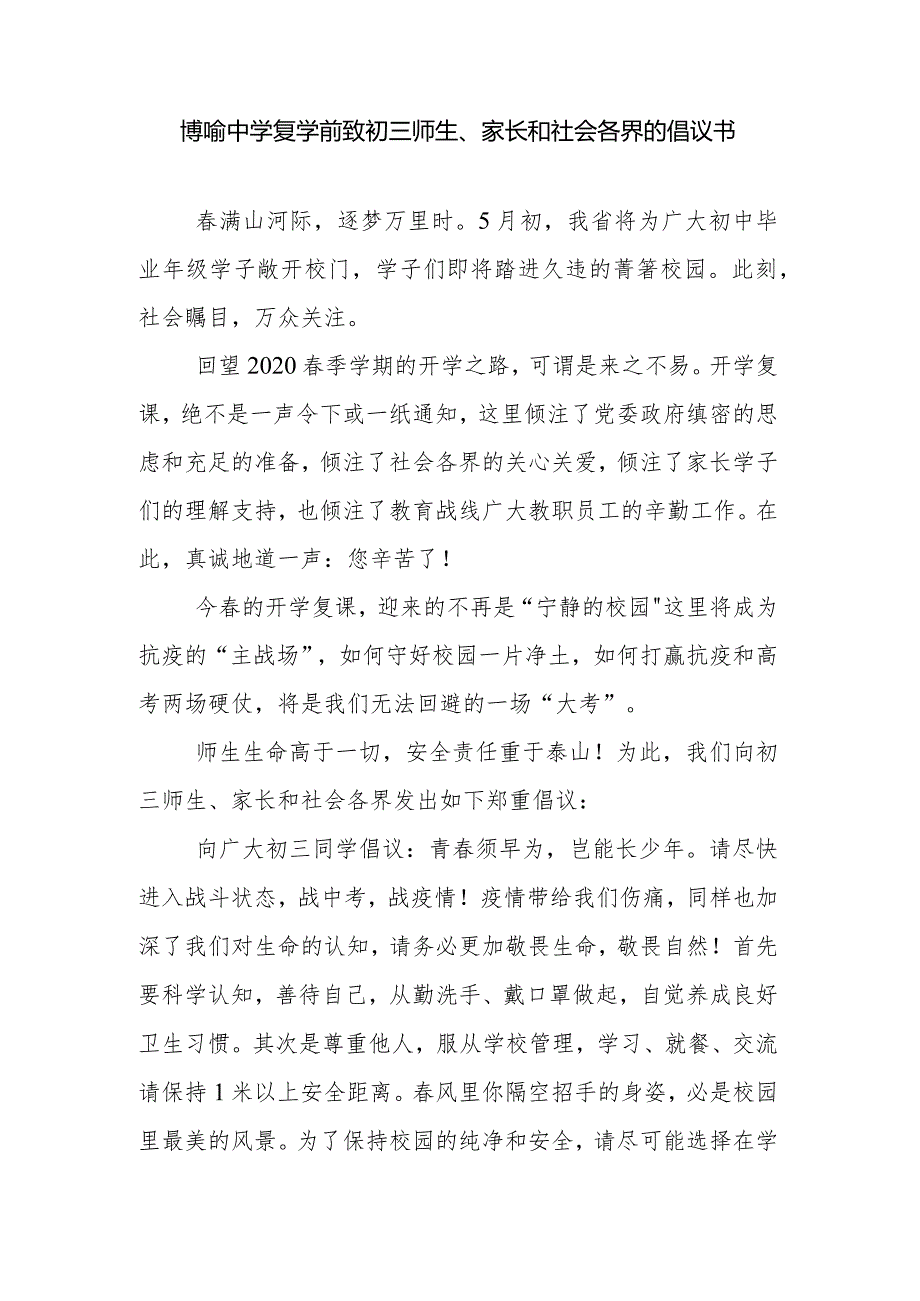 博喻中学复学前致初三师生、家长和社会各界的倡议书
春满山河际，逐梦万里时。5 月初，我省将为广大初中毕
业年级学子敞开校门，学子们即将踏进久违的菁箸校园。此刻，
社会瞩目，万众关注。
回望 2020 春季学期的开学之路，可谓是来之不易。开学复
课，绝不是一声令下或一纸通知，这里倾注了党委政府缜密的思
虑和充足的准备，倾注了社会各界的关心关爱，倾注了家长学子
们的理解支持，也倾注了教育战线广大教职员工的辛勤工作。在
此，真诚地道一声：您辛苦了！
今春的开学复课，迎来的不再是“宁静的校园"这里将成为
抗疫的“主战场”，如何守好校园一片净土，如何打赢抗疫和高
考两场硬仗，将是我们无法回避的一场“大考”。
师生生命高于一切，安全责任重于泰山！为此，我们向初
三师生、家长和社会各界发出如下郑重倡议：
向广大初三同学倡议：青春须早为，岂能长少年。请尽快
进入战斗状态，战中考，战疫情！疫情带给我们伤痛，同样也加
深了我们对生命的认知，请务必更加敬畏生命，敬畏自然！首先
要科学认知，善待自己，从勤洗手、戴口罩做起，自觉养成良好
卫生习惯。其次是尊重他人，服从学校管理，学习、就餐、交流
请保持 1 米以上安全距离。春风里你隔空招手的身姿，必是校园
里最美的风景。为了保持校园的纯净和安全，请尽可能选择在学